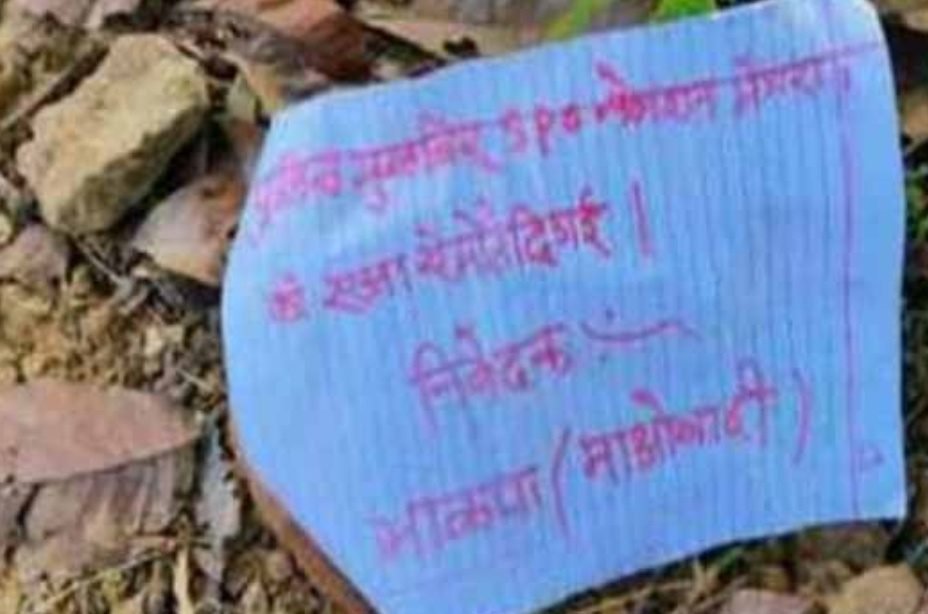 पुलिस मुखबिर SPO
के सजा से मौत दि गई |
निवेदक :-
भाकपा (माओवादी)